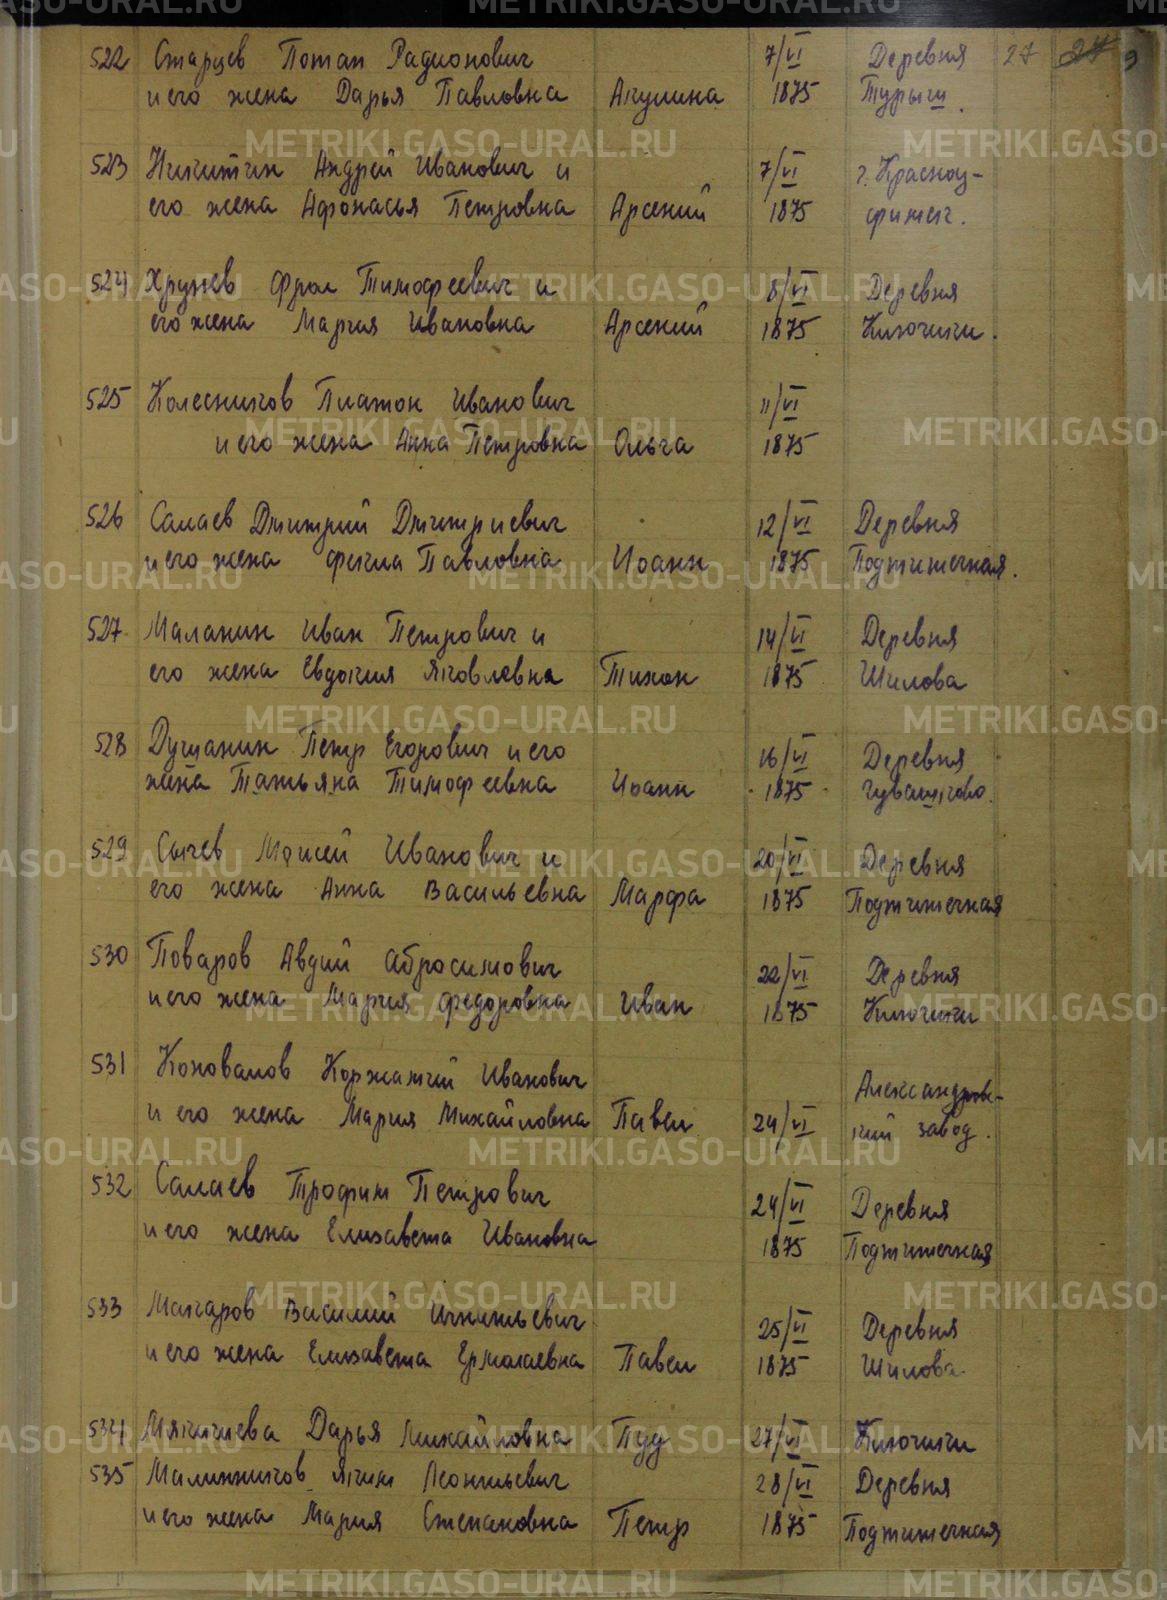 522 Старцев Потап Радионович 7/VI Деревня 27 27 9
и его жена Дарья Павловна Акулина 1875 Турыш.
523 Никитин Андрей Иванович и 7/VI г. Красноу-
его жена Афонасья Петровна Арсений 1875 фимск.
524 Хрущев Фрол Тимофеевич и 8/VI Деревня
его жена Мария Ивановна Арсений 1875 Ключики.
525 Колесников Платон Иванович 11/VI
и его жена Анна Петровна Ольга 1875
526 Салаев Дмитрий Дмитриевич 12/VI Деревня
и его жена Фекла Павловна Иоанн 1875 Подгишечная.
527 Маланин Иван Петрович и 14/VI Деревня
его жена Евдокия Яковлевна Тихон 1875 Шилова
528 Душанин Петр Егорович и его 16/VI Деревня
жена Татьяна Тимофеевна Иоанн 1875 Чувашково.
529 Сычев Моисей Иванович и 20/VI Деревня
его жена Анна Васильевна Марфа 1875 Подгишечная
530 Поваров Авдий Абросимович 22/VI Деревня
и его жена Мария Федоровна Иван 1875 Ключики
531 Коновалов Иванович Александров-
и его жена Мария Михайловна Павел 24/VI кий завод.
532 Салаев Трофим Петрович 24/VI Деревня
и его жена Елизавета Ивановна 1875 Подгишечная
533 Макаров Василий Игнатьевич 25/VI Деревня
и его жена Елизавета Ермолаевна Павел 1875 Шилова
534 Мякишева Дарья Михайловна Пуд 27/VI Ключики
535 Малинников Яким Леонтьевич 28/VI Деревня
и его жена Мария Степановна Петр 1875 Подгишечная
METRIKI.GASO-URAL.RU